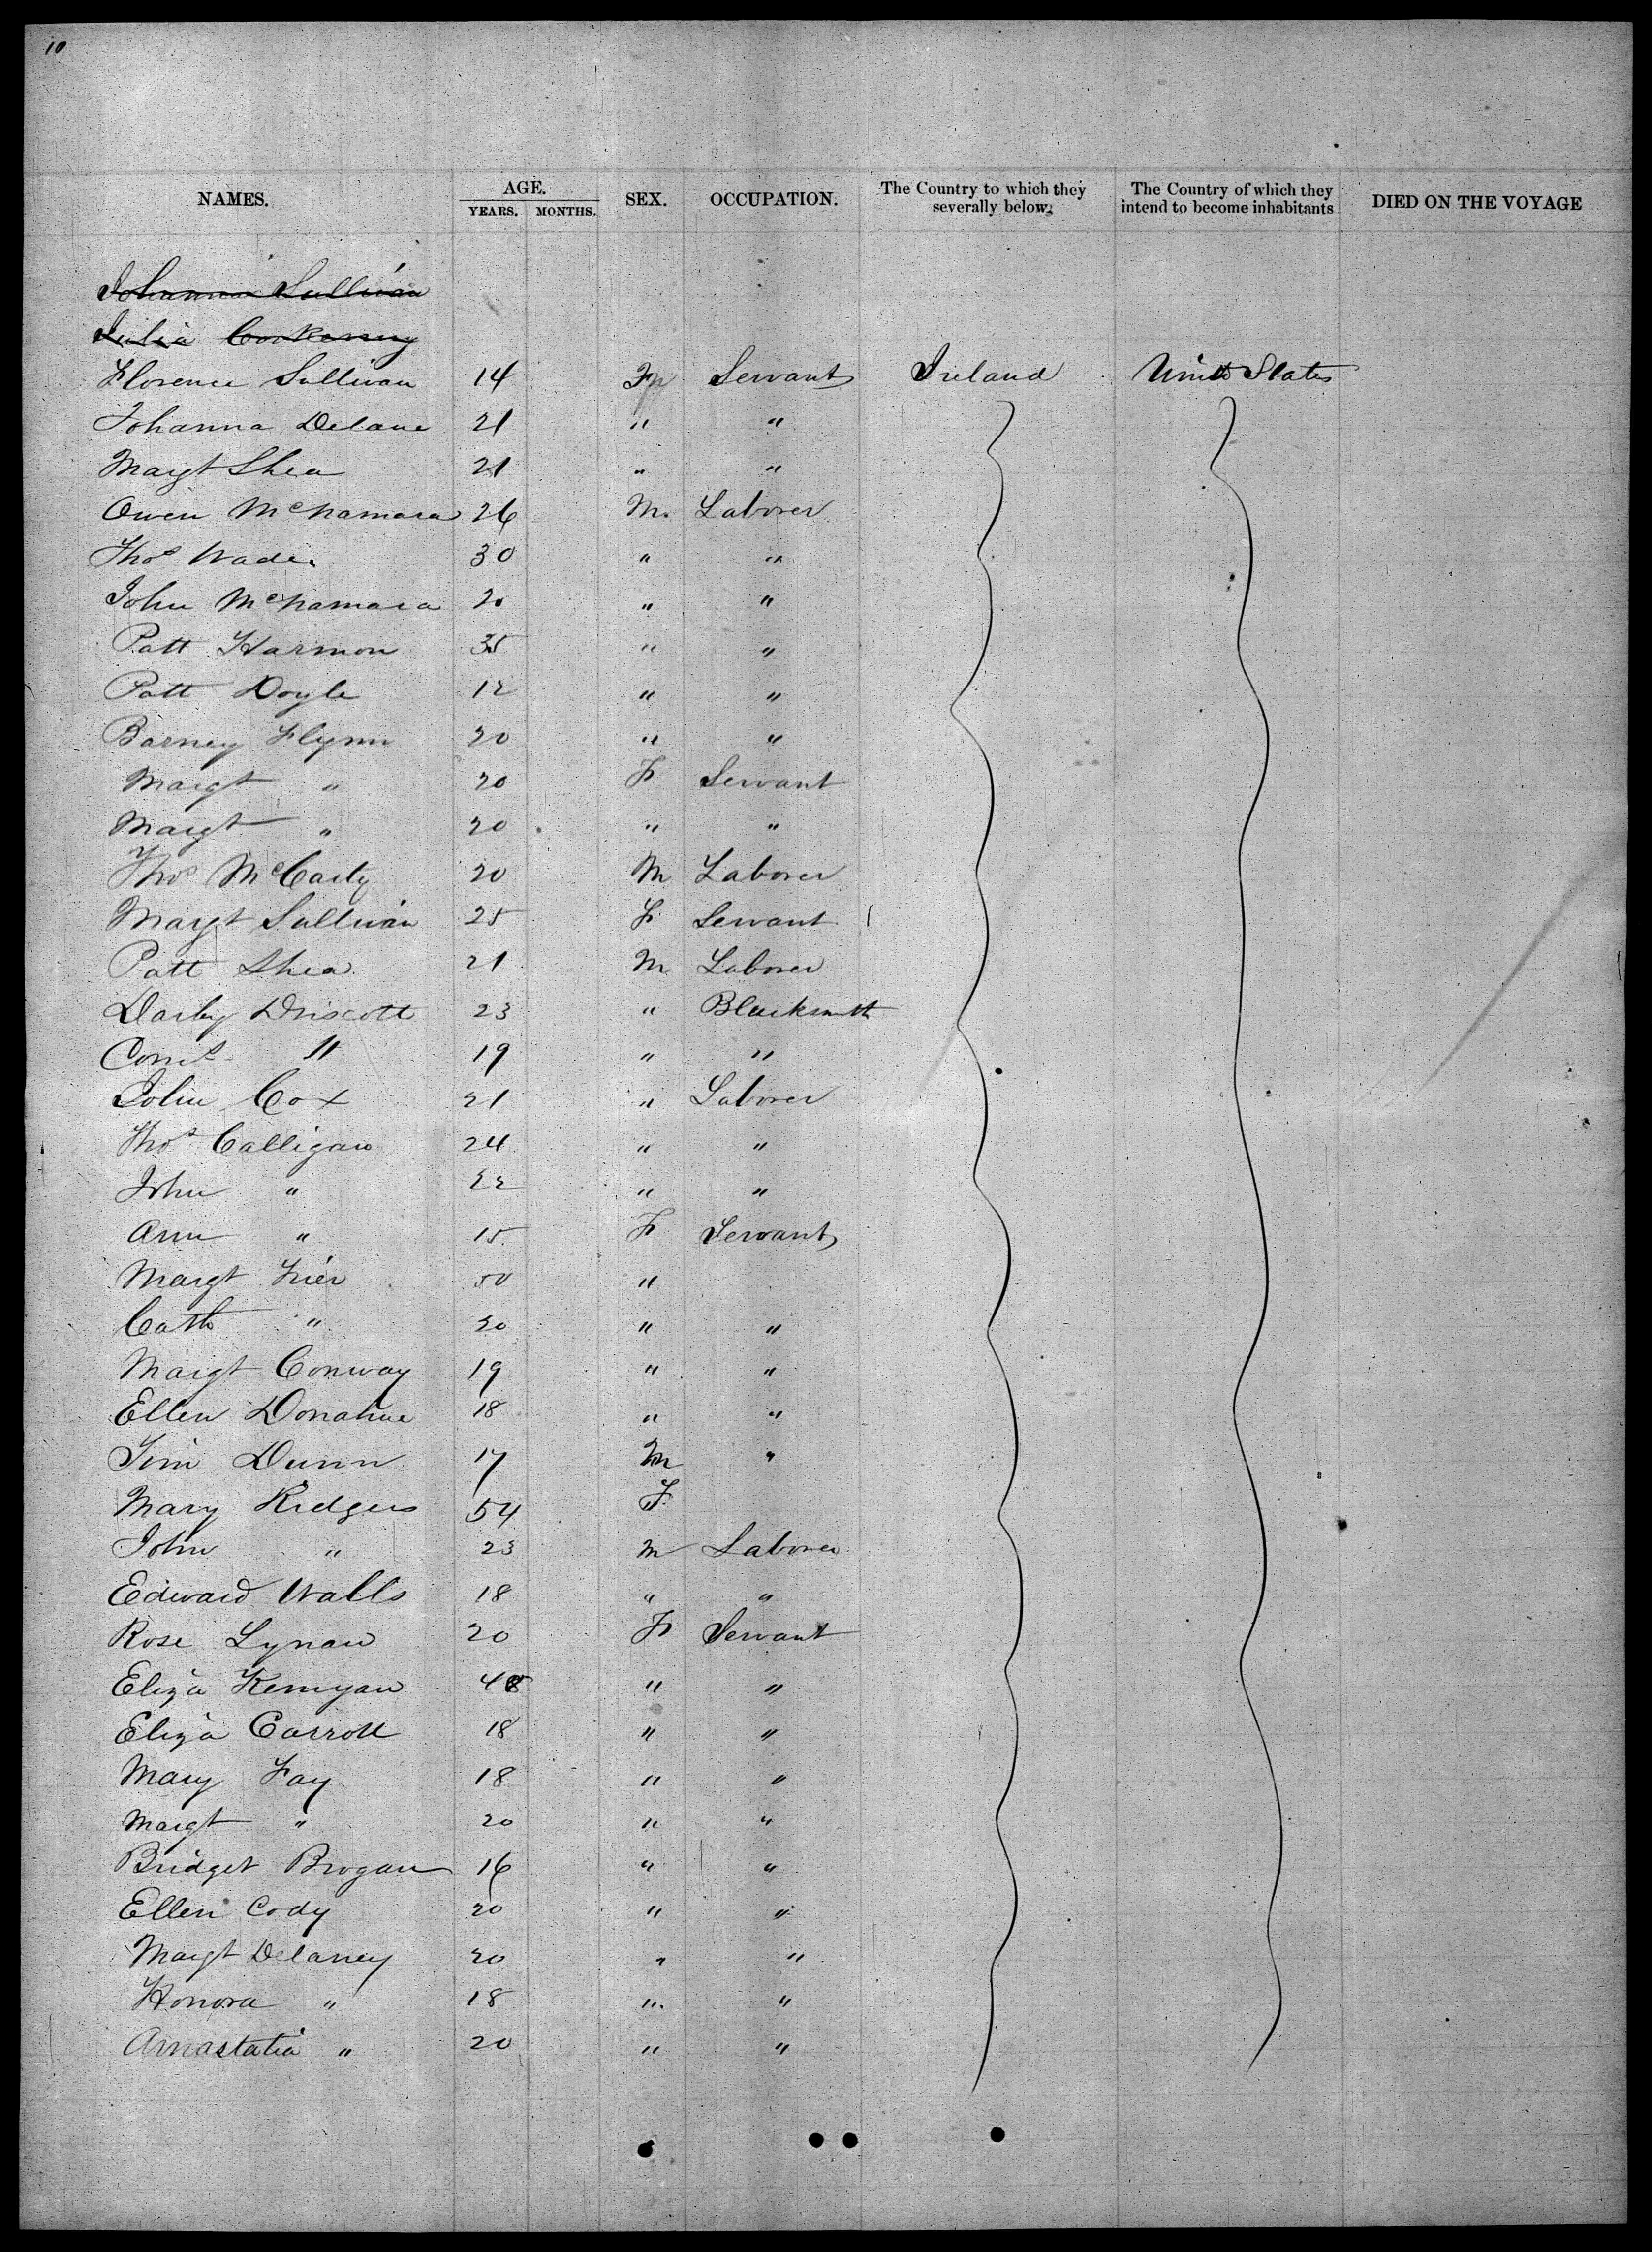 10
NAMES. AGE. YEARS. MONTHS. SEX. OCCUPATION. The Country to which they severally below. The Country of which they intend to become inhabitants DIED ON THE VOYAGE
Johanna Sullivan
Julia
Florence Sullivan 14 F Servant Ireland United States
Johanna Delane 21 " "
Margt Shea 21 " "
Owen McNamara 26 M. Laborer
Thos Wade 30 " "
John McNamara 20 " "
Patt Harmon 35 " "
Patt Doyle 12 " "
Barney Flynn 20 " "
Margt " 20 F Servant
Margt " 20 " "
Thos McCarty 20 M Laborer
Margt Sullivan 25 F Servant
Patt Shea 21 M Laborer
Darby Driscoll 23 " Blacksmith
Corns " 19 " "
John Cox 21 " Laborer
Thos Calligan 24 " "
John " 22 " "
Ann " 15 F Servant
Margt 50 "
Cath " 20 " "
Margt Conway 19 " "
Ellen Donahue 18 " "
Tim Dunn 17 M "
Mary Ridgers 54 F.
John " 23 M Laborer
Edward Walls 18 " "
Rose Lynan 20 F Servant
Eliza Kernyan 48 " "
Eliza Carroll 18 " "
Mary Fay 18 " "
Margt " 20 " "
Bridget Brogan 16 " "
Ellen Cody 20 " "
Margt Delaney 20 " "
Honora " 18 " "
Annastatia " 20 " "